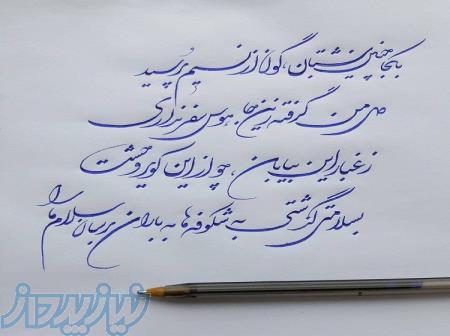 به کجا چنین شتابان، گون از نسیم پرسید
دل من گرفته زین جا، هوس سفر نداری
ز غبار این بیابان، چو از این کویر وحشت
بسلامتی گذشتی به شکوفه ها به باران برسان سلام ما را
نیازپرداز